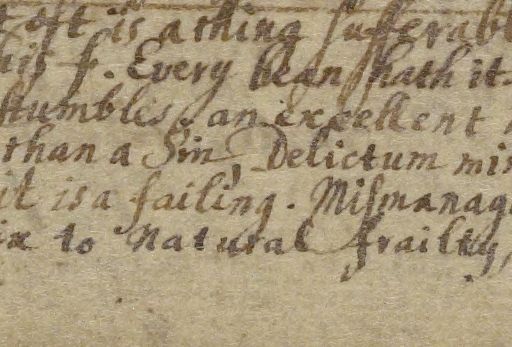 oft is a thing sufferabl
his f. Every bean hath it
stumbles. an excellent
than a Sin, Delictum min
it is a failing. Mismanag
ix to Natural frailty,